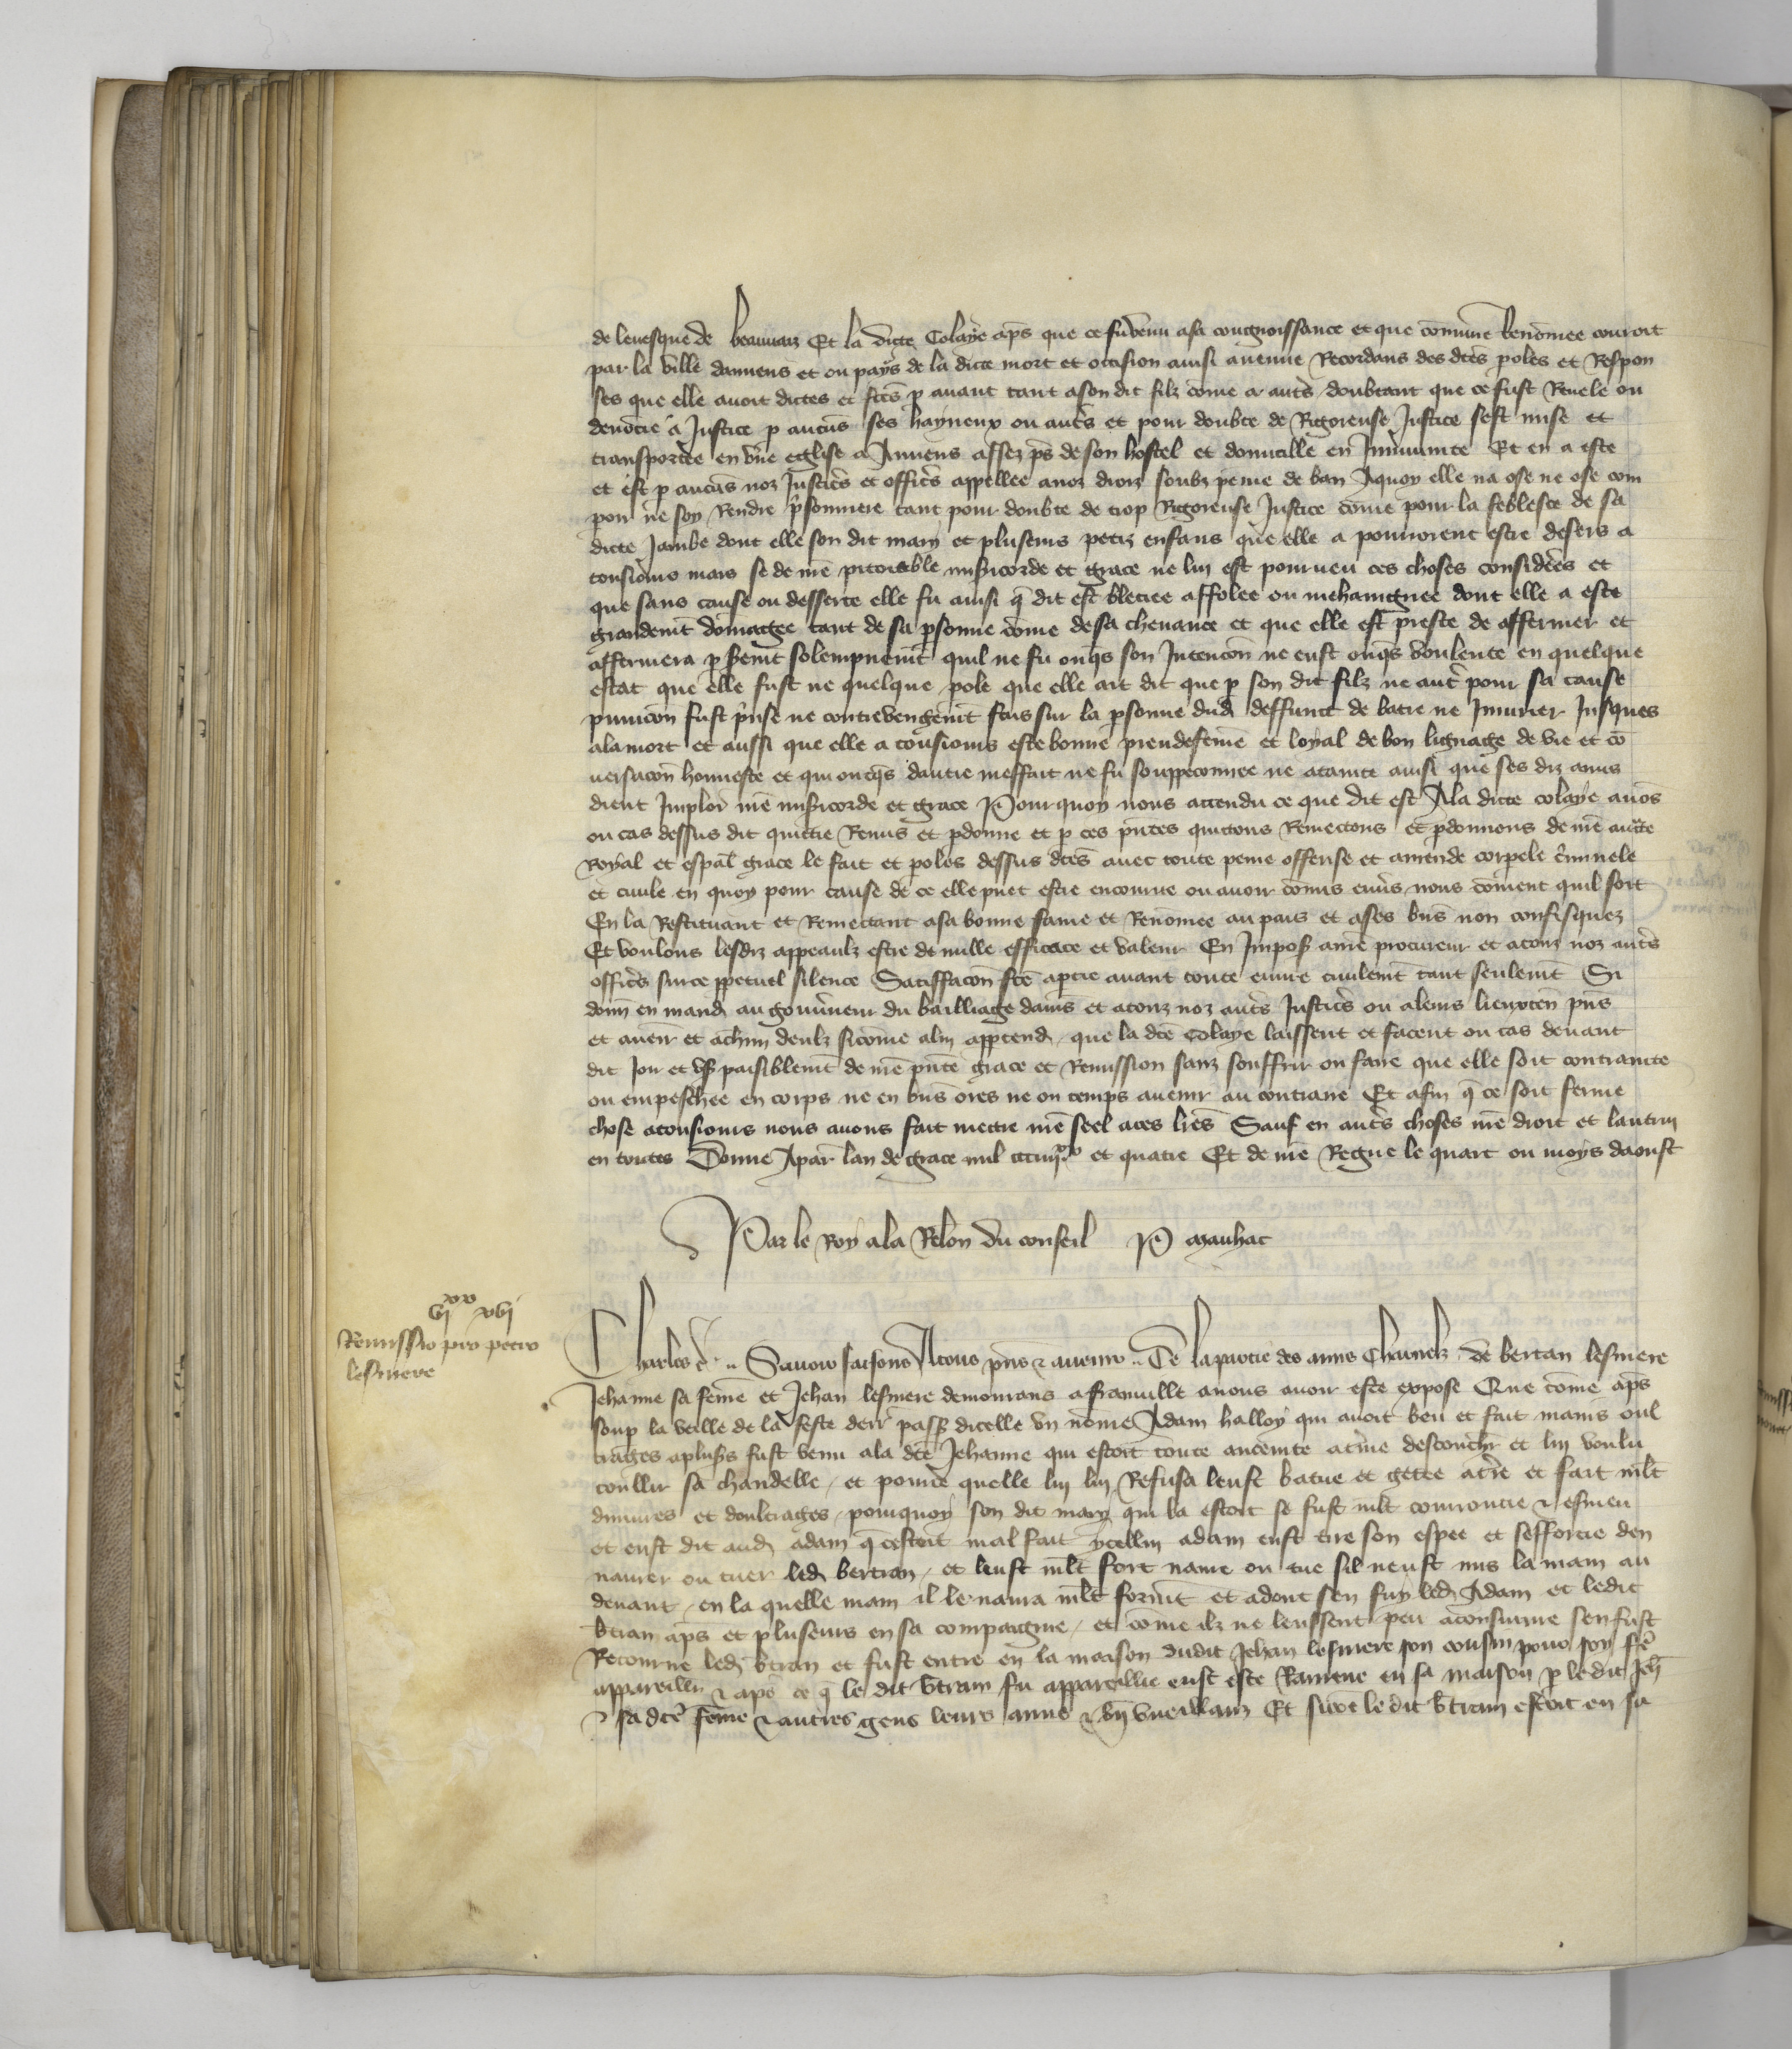 de levesque de beauuaiz Et la dicte Colaye aps que ce fu venu a sa congnoissance et que comune Renomee couroit
par la ville damiens et ou pays de la dicte mort et occision ainsi auenue Recordans des dces poles et Respon
ses que elle auoit dictes et fces p auant tant a son dit filz come a autres doubtant que ce fust Reuele ou
denoncie a Justice p aucuns ses hayneux ou autres et pour doubte de Rigoreuse Justice sest mise et
transportee en vne eglise a Amiens assez ps de son hostel et domicille en Immunite Et en a este
et est p aucuns noz Justices et offices appellee a noz droiz soubz peine de ban A quoy elle na ose ne ose com
paoir ne soy Rendre prisonniere tant pour doubte de trop Rigoreuse Justice come pour la feblesce de sa
dicte Jambe dont elle son dit mary et pluseurs petiz enfans que elle a pourroient estre desers a
tousiours mais se de nre pitoiable misericorde et grace ne lui est pourueu ces choses considerees et
que sans cause ou desserte elle fu ainsi q dit est bleciee affolee ou mehaingnee dont elle a este
grandemt domagee tant de sa psonne come de sa cheuance et que elle est preste de affermer et
affermera p seremt solempnemt quil ne fu onqs son Intencion ne eust onqs voulente en quelque
estat que elle fust ne quelque pole que elle ait dit que p son dit filz ne autre pour sa cause
punicion fust prise ne contrevengemt fais sur la psonne dud deffunct de batre ne Iniurier Jusques
a la mort et aussi que elle a tousiours este bonne preudefeme et loyal de bon lignage de vie et co
uersacion honneste et qui oncqs dautre meffait ne fu souppeconnee ne atainte ainsi que ses diz amis
dient Implor nre misericorde et grace Pour quoy nous attendu ce que dit est A la dicte colaye auons
ou cas dessus dit quictie Remis et pdonne et p ces pntes quictons Remectons et pdonnons de nre aucte
Royal et espal grace le fait et poles dessus dces auec toute peine offense et amende corpele criminele
et ciuile en quoy pour cause de ce elle puet estre encourue ou auoir comis enuers nous coment quil soit
En la Restituant et Remectant a sa bonne fame et Renomee au pais et a ses bns non confisquez
Et voulons lesdiz appeaulx estre de nulle efficace et valeur En Impos a nre procureur et a touz noz autres
offices sur ce ppetuel silence Satisfaccion fce a partie auant toute euure ciuilemt tant seulemt Si
donn en mand au gouuneur du bailliage damiens et a touz noz autres Justices ou a leurs lieuxten pns
et auenir et a chun deulx sicome a lui apptend que la dce Colaye laissent et facent ou cas deuant
dit Joir et vs paisiblemt de nre pnte grace et Remission sanz souffrir ou faire que elle soit contrainte
ou empeschee en corps ne en bns ores ne ou temps auenir au contraire Et afin q ce soit ferme
chose a tousiours nous auons fait mectre nre seel a ces lres Sauf en autres choses nre droit et lautrui
en toutes Donne A par lan de grace mil ccciiijxx et quatre Et de nre Regne le quart ou moys daoust
Par le Roy a la Relon du conseil P Mauhac
vjxx xvij
Remissio pro petro
lesmere
Charles &c Sauoir faisons A tous pns & auenir De la partie des amis charnelz de bertran lesmere
Jehanne sa feme et Jehan lesmere demourans a franuille a nous auoir este expose Que come aps
soup la veille de la feste derr pass dicelle vn nome Adam halloy qui auoit beu et fait mains oul
trages a pluss fust venu a la dce Jehanne qui estoit toute anceinte a terme descouchr et lui voulu
toullir sa chandelle et pource quelle lui lui Refusa leust batue et getee a tre et fait mlt
diniures et doultrages pourquoy son dit mary qui la estoit se fust mlt courroucie & esmeu
et eust dit aud adam q cestoit mal fait ycellui adam eust tire son espee et sefforcie den
naurer ou tuer led bertran et leust mlt fort naure ou tue sil neust mis la main au
deuant en la quelle main il le naura mlt formt et adont sen fuy led Adam et ledit
btran aps et pluseurs en sa compaignie et come ilz ne leussent peu aconsuiure sen fust
Retourne led btran et fust entre en la maison dudit Jehan lesmere son cousin pour soy fe
appareillir & aps ce q le dit btram fu appareillie eust este Ramene en sa maison p le dit Jeh
& sa dce feme & autres gens leurs amis & bn vueillanz Et si tot le dit btram estoit en sa